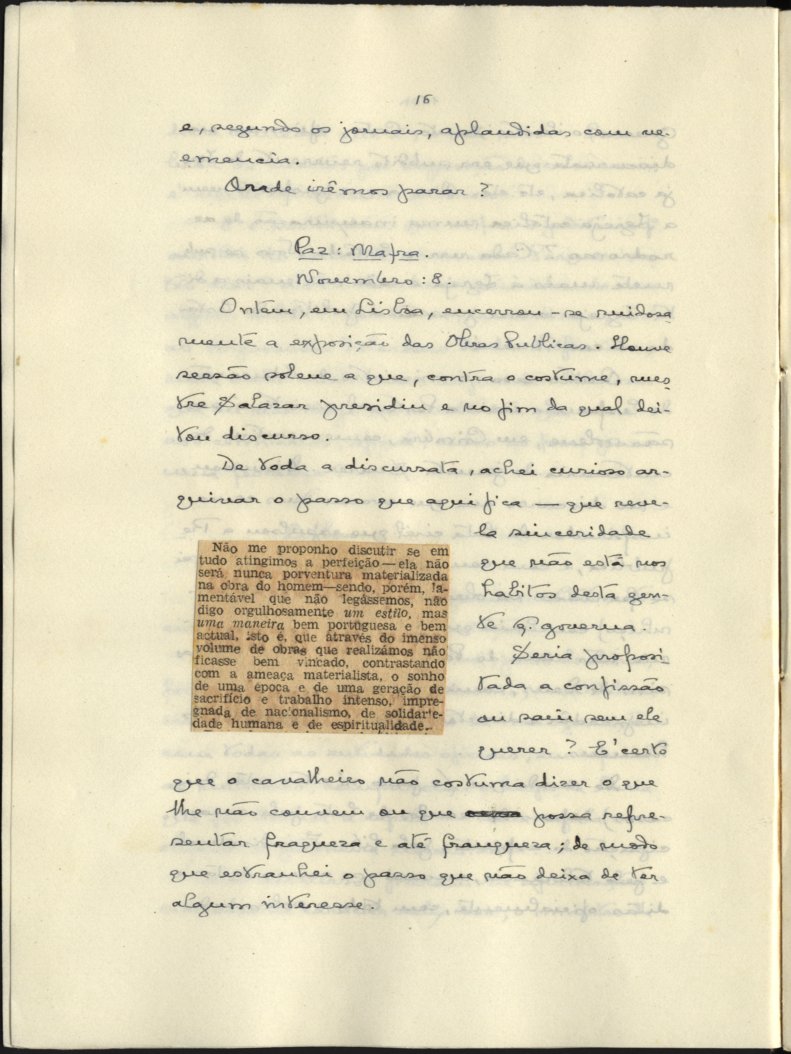 16
e, segundo os jornais, aplaudidas com ve-
emencia.
Onde irêmos parar?
Paz: Mafra.
Novembro: 8.
Ontem, em Lisboa, encerrou-se ruidosa
mente a exposição das Obras Publicas. Houve
sessão solene a que, contra o costume, mes-
tre Salazar presidiu e no fim da qual dei-
tou discurso.
De toda a discursata, achei curioso ar-
quivar o passo que aqui fica — que reve-
la sinceridade
que não está nos
habitos desta gen-
te q. governa.
Seria proposi
tada a confissão
ou saíu sem ele
querer? E' certo
Não me proponho discutir se em
tudo atingimos a perfeição—ela não
será nunca porventura materializada
na obra do homem—sendo, porém, la-
mentável que não legássemos, não
digo orgulhosamente um estilo, mas
uma maneira bem portuguesa e bem
actual, isto é, que através do imenso
volume de obras que realizámos não
ficasse bem vincado, contrastando
com a ameaça materialista, o sonho
de uma época e de uma geração de
sacrifício e trabalho intenso, impre-
gnada de nacionalismo, de solidarie-
dade humana e de espiritualidade.
que o cavalheiro não costuma dizer o que
lhe não convem ou que possa repre-
sentar fraqueza e até franqueza; de modo
que estranhei o passo que não deixa de ter
algum interesse.